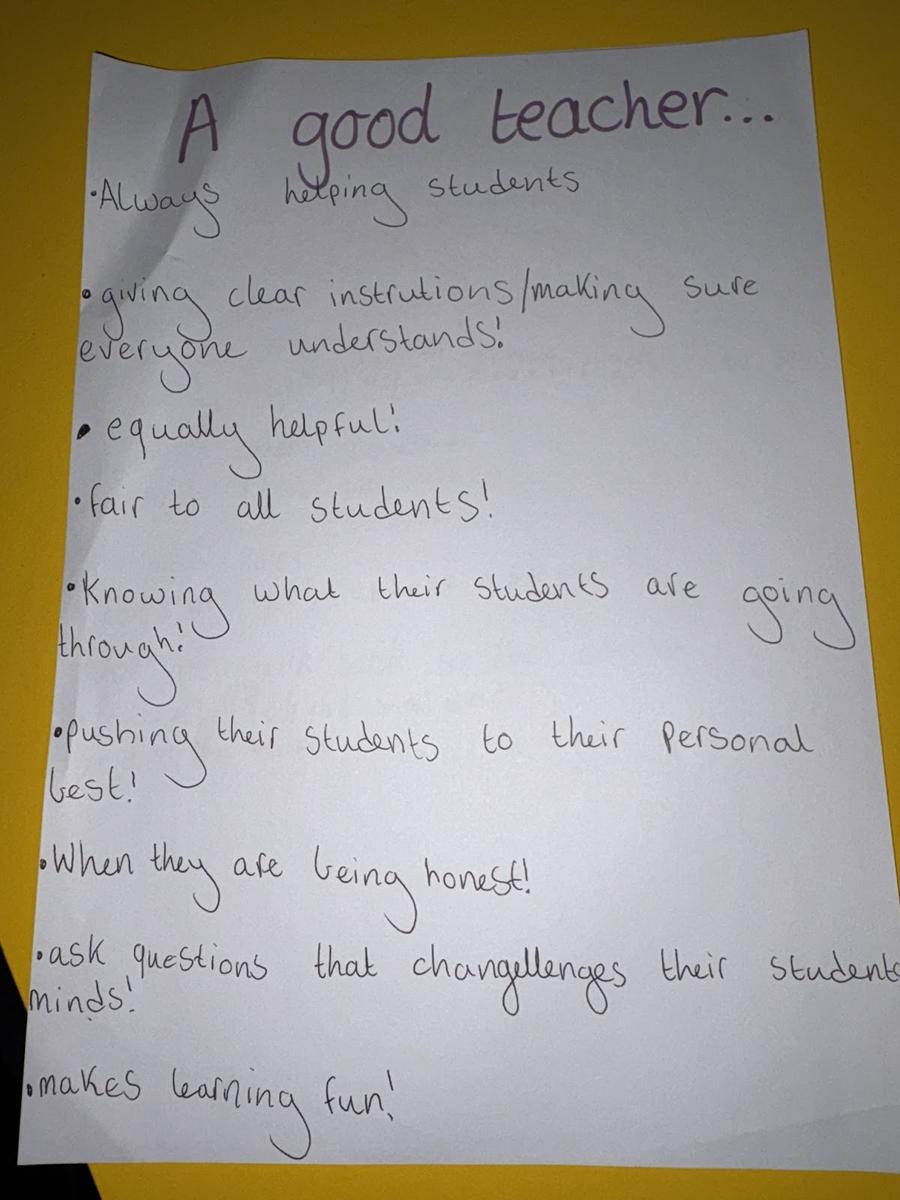 A good teacher...
•Always helping students
•giving clear instrutions/making sure
everyone understands!
•equally helpful!
•fair to all students!
•Knowing what their students are going
through!
•pushing their students to their personal
best!
•When they are being honest!
•ask questions that changellenges their students
minds!
•makes learning fun!